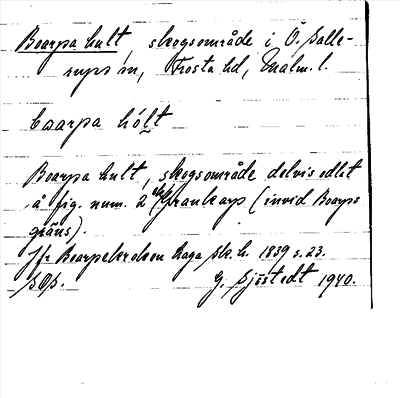 Boarpa hult, skogsområde i Ö. Salle-
rups sn, Frosta hd, Malm. l.
boarpa hólt
Boarpa hult, skogsområde delvis odlat
å fig. num. 2 Frankarp (invid Boarps
gräns).
Jfr Boarpekroken Laga sk. h. 1839 s. 23.
G. Sjöstedt 1940.